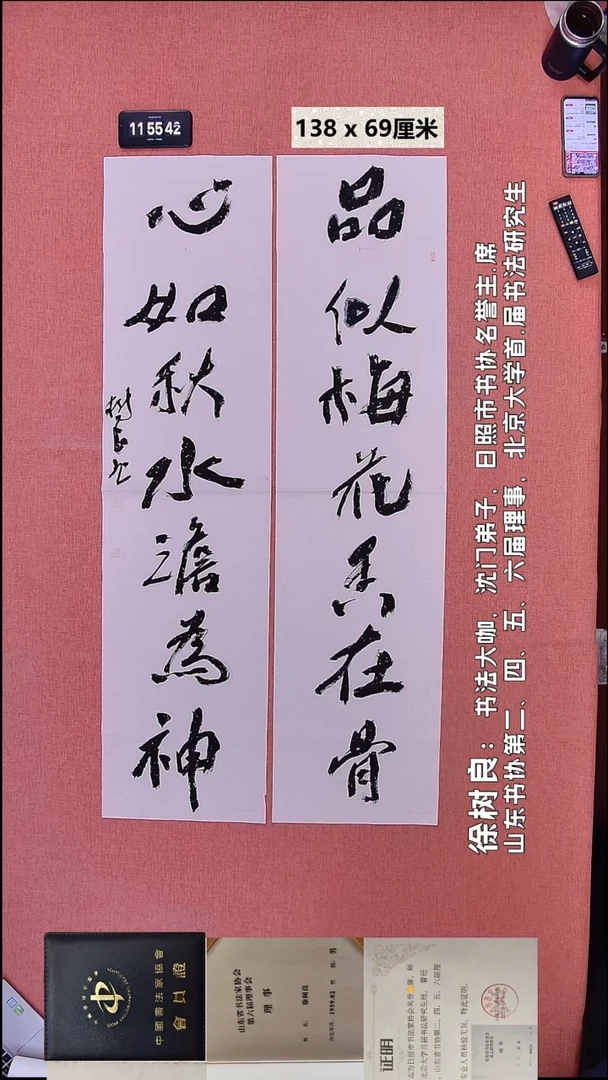 11 55 42
138 x 69厘米
品似梅花香在骨
心如秋水澹为神
树良书
徐树良：书法大咖，沈门弟子，日照市书协名誉主.席
山东书协第二、四、五、六届理事，北京大学首.届书法研究生
中國書法家協會
會員證
山东省书法家协会
第六届理事会
理事
徐树良
男
1959.02
证明